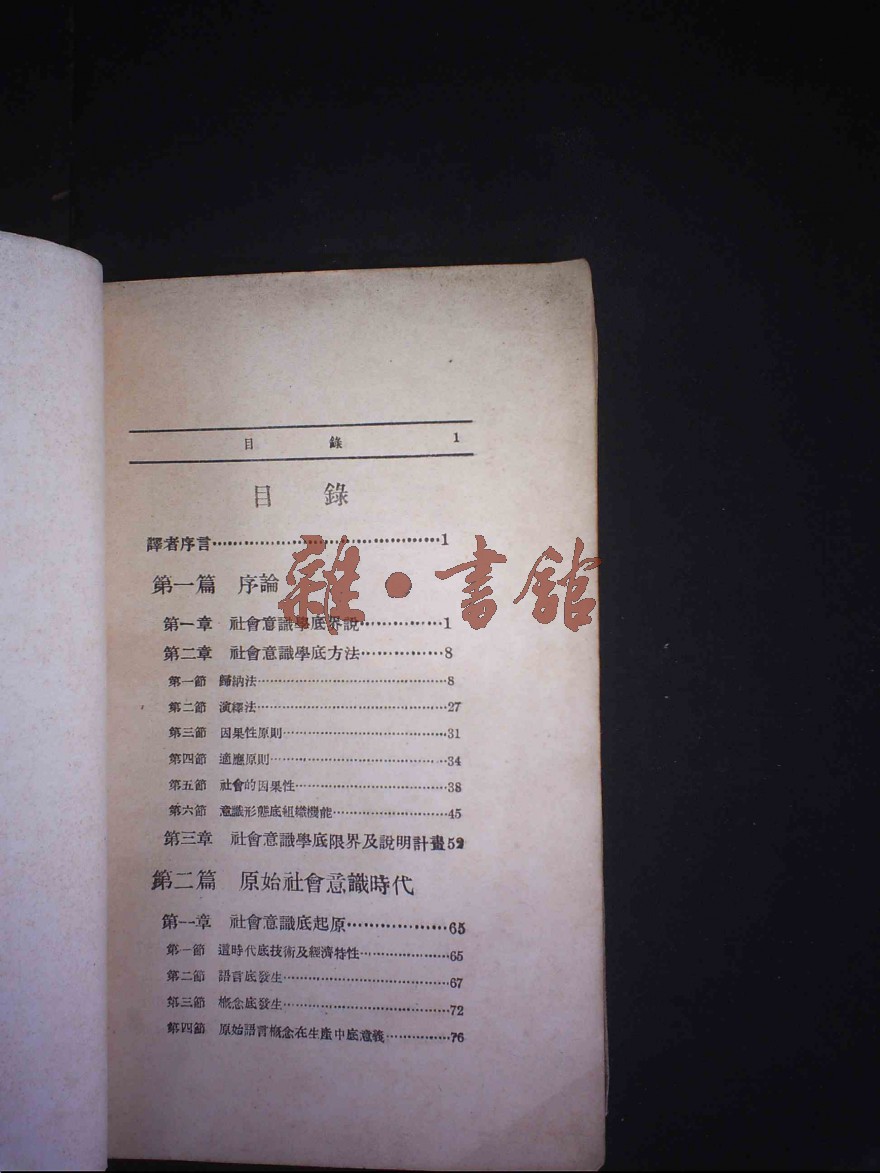 目錄 1
目錄
譯者序言…………………………………1
第一篇 序論
第一章 社會意識學底界說……………1
第二章 社會意識學底方法……………8
第一節 歸納法…………………………8
第二節 演繹法…………………………27
第三節 因果性原則……………………31
第四節 適應原則………………………34
第五節 社會的因果性…………………38
第六節 意識形態底組織機能…………45
第三章 社會意識學底限界及說明計畫52
第二篇 原始社會意識時代
第一章 社會意識底起原………………65
第一節 這時代底技術及經濟特性……65
第二節 語言底發生……………………67
第三節 概念底發生……………………72
第四節 原始語言概念在生產中底意義……76
雜·書館